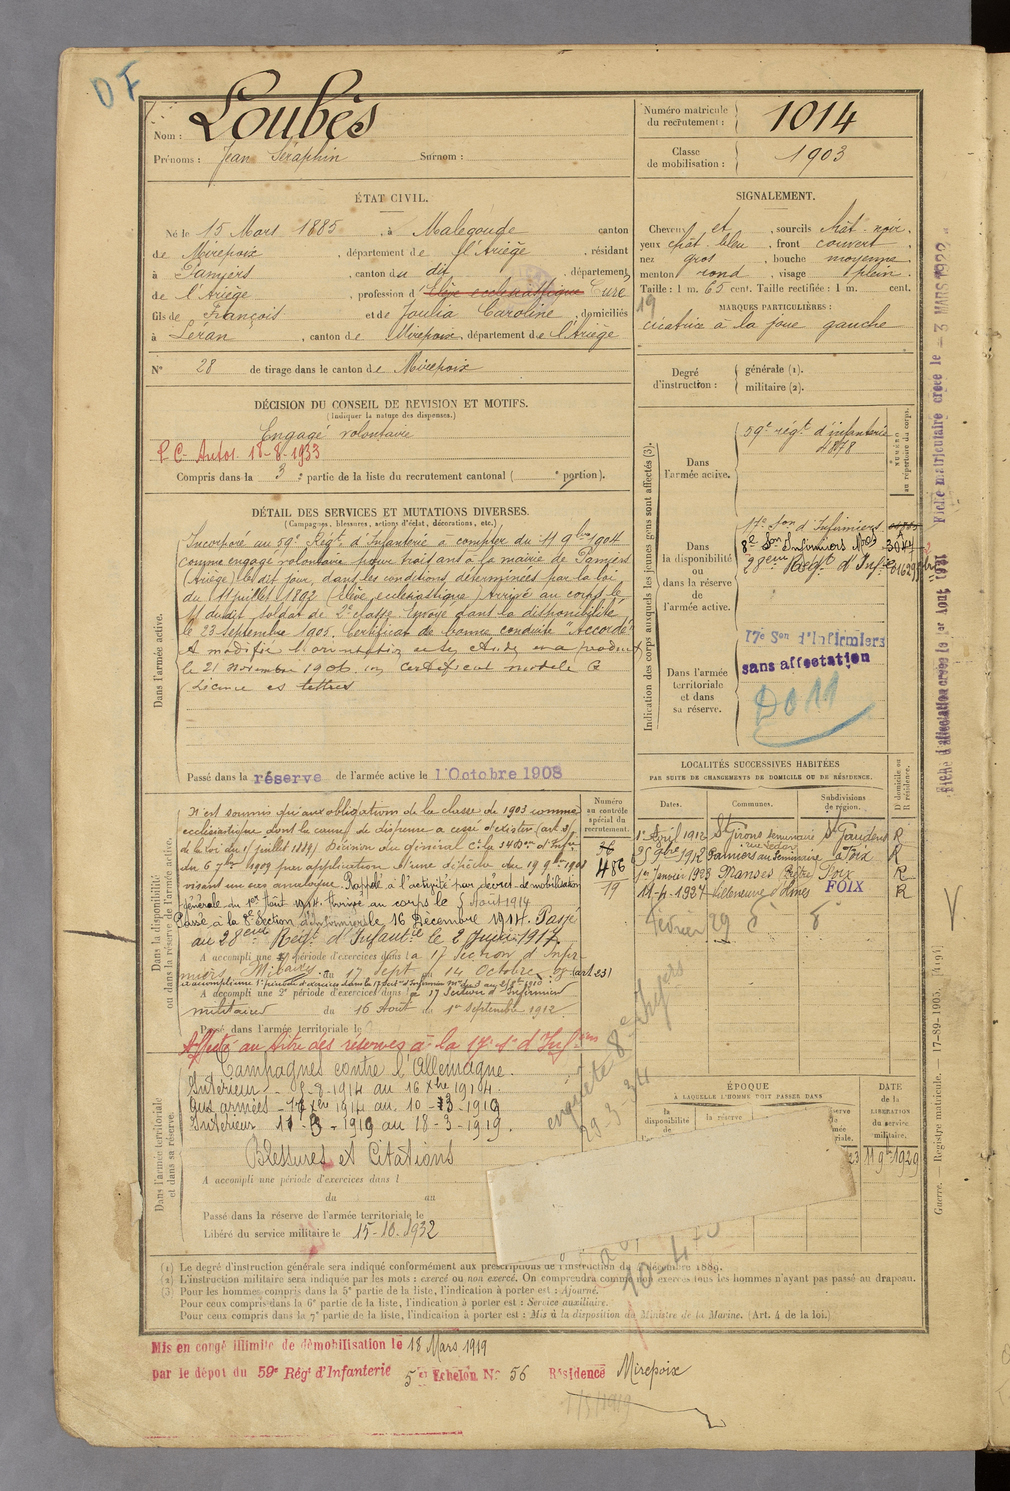 DF
Nom : Loubès
Prénoms : Jean Séraphin Surnom :
Numéro matricule du recrutement : 1014
Classe de mobilisation : 1903
ÉTAT CIVIL.
Né le 15 Mars 1885, à Malegoude canton
de Mirepoix, département de l'Ariège, résidant
à Pamiers, canton du dit, département
de l'Ariège, profession d'Élève ecclésiastique Curé
fils de François et de Joulia Caroline, domiciliés
à Léran, canton de Mirepoix, département de l'Ariège
N° 28 de tirage dans le canton de Mirepoix
SIGNALEMENT.
Cheveux et, sourcils chât-noir.
yeux chât-bleu, front couvert
nez gros, bouche moyenne
menton rond, visage plein.
Taille : 1 m. 65 cent. Taille rectifiée : 1 m. cent.
MARQUES PARTICULIÈRES :
19
cicatrice à la joue gauche
Degré d'instruction : générale (1).
militaire (2).
DÉCISION DU CONSEIL DE REVISION ET MOTIFS.
(Indiquer la nature des dispenses.)
Engagé volontaire
P C- Autos 18-8-1933
Compris dans la 3e partie de la liste du recrutement cantonal ( e portion).
DÉTAIL DES SERVICES ET MUTATIONS DIVERSES.
(Campagnes, blessures, actions d'éclat, décorations, etc.)
Dans l'armée active.
Incorporé au 59e Régt d'Infanterie à compter du 11 9bre 1904
comme engagé volontaire pour trois ans à la mairie de Pamiers
(Ariège) le dit jour, dans les conditions déterminées par la loi
du 11 juillet 1892 (élève ecclésiastique) Arrivé au corps le
11 dudit, soldat de 2e classe. Envoyé dans la disponibilité
le 23 septembre 1905. Certificat de bonne conduite "Accordé"
le 21 Novembre 1906 un certificat modèle B
Licence es lettres
Passé dans la réserve de l'armée active le 1 Octobre 1908
Indication des corps auxquels les jeunes gens sont affectés (3).
NUMÉRO au répertoire du corps.
Dans l'armée active.
59e régt d'infanterie
4878
Dans la disponibilité ou dans la réserve de l'armée active.
17e Son d'Infirmiers
8e Son Infirmiers
28eme Régt d'Infie
Dans l'armée territoriale et dans sa réserve.
17e Son d'Infirmiers
sans affectation
D011
Fiche matriculaire créée le - 3 MARS 1922
Fiche d'affectation créée le 1er Aout 1931
Dans la disponibilité ou dans la réserve de l'armée active.
N'est soumis qu'aux obligations de la classe de 1903 comme
ecclésiastique dont la cause de dispense a cessé d'exister (art
de la loi du 15 juillet 1889) Décision du Général
du 6 7bre 1909 par application d'une
visant un cas analogue. Rappelé à l'activité par décret de mobilisation
générale du 1er Août 1914. Arrivé au corps le 5 Août 1914
Passé à la 8e Section d'Infirmiers le 16 Décembre 1914. Passé
au 28eme Régt d'Infantie le 2 Juin 1917.
A accompli une 1e période d'exercices dans la 17 Section d'Infir-
miers Militaires du 17 Sept au 14 Octobre 08 (art 23)
A accompli une 2e période d'exercices dans la 17 Section d'Infirmiers
militaires du 16 Août au 1er Septembre 1912.
Passé dans l'armée territoriale le
Affecté au titre des réserves à la 17e So d'Infirm
Numéro au contrôle spécial du recrutement.
486
19
LOCALITÉS SUCCESSIVES HABITÉES
PAR SUITE DE CHANGEMENTS DE DOMICILE OU DE RÉSIDENCE.
Dates. Communes. Subdivisions de région. D domicile ou R résidence.
1er Avril 1912 St Girons seminaire St Gaudens R
25 9bre 1912 Pamiers au Séminaire Foix R
1er Janvier 1923 Manses Foix R
11-4-1927 Villeneuve d'Olmes FOIX R
Février 29 d° d°
Dans l'armée territoriale et dans sa réserve.
Campagnes contre l'Allemagne.
Intérieur - 5-8-1914 au 16 Xbre 1914.
Aux armées - 17 Xbre 1914 au 10-3-1919
Intérieur 11-3-1919 au 18-3-1919.
Blessures et Citations
A accompli une période d'exercices dans l
du au
Passé dans la réserve de l'armée territoriale le
Libéré du service militaire le 15-10-1932
enquête 8e Infers
29-3-34
ÉPOQUE
À LAQUELLE L'HOMME DOIT PASSER DANS
la disponibilité
la réserve
DATE de la LIBÉRATION du service militaire.
11 9bre 1929
(1) Le degré d'instruction générale sera indiqué conformément aux prescriptions de l'instruction du décembre 1889.
(2) L'instruction militaire sera indiquée par les mots : exercé ou non exercé. On comprendra comme non exercés tous les hommes n'ayant pas passé au drapeau.
(3) Pour les hommes compris dans la 5e partie de la liste, l'indication à porter est : Ajourné.
Pour ceux compris dans la 6e partie de la liste, l'indication à porter est : Service auxiliaire.
Pour ceux compris dans la 7e partie de la liste, l'indication à porter est : Mis à la disposition du Ministre de la Marine. (Art. 4 de la loi.)
Guerre. — Registre matricule. — 17-89-1905. [419]
Mis en congé illimité de démobilisation le 18 Mars 1919
par le dépôt du 59e Régt d'Infanterie 5e Echelon N° 56 Résidence Mirepoix